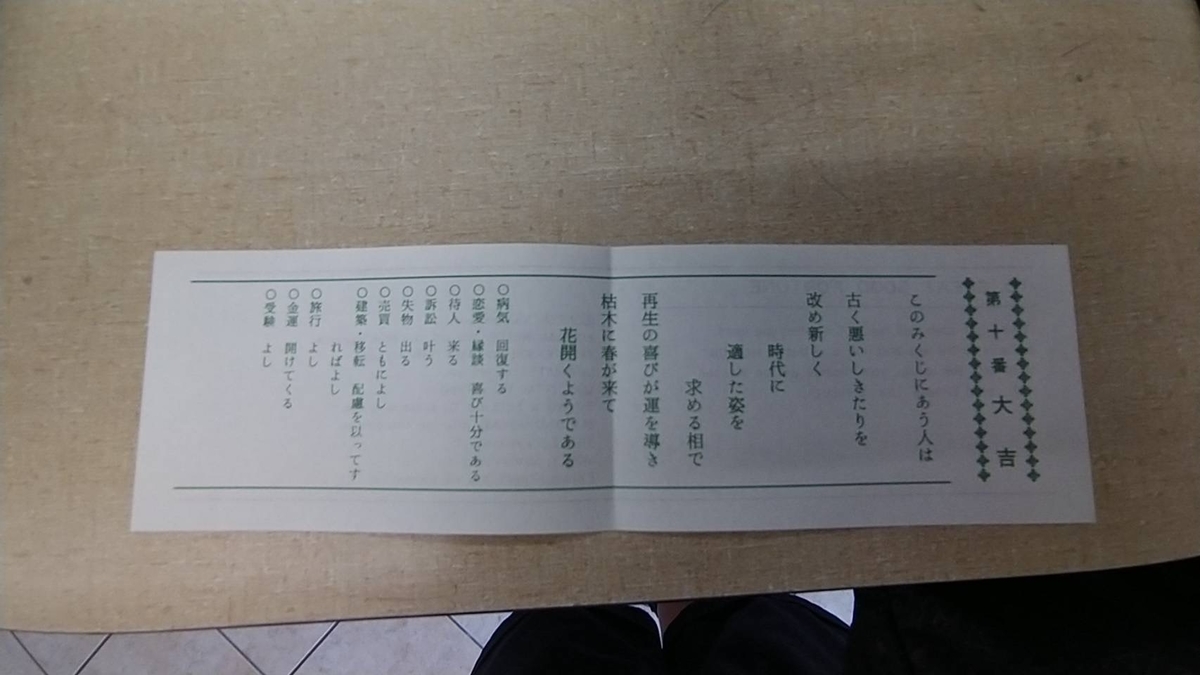 第十番大吉
このみくじにあう人は
古く悪いしきたりを
改め新しく
時代に
適した姿を
求める相で
再生の喜びが運を導き
枯木に春が来て
花開くようである
○病気 回復する
○恋愛・縁談 喜び十分である
○待人 来る
○訴訟 叶う
○失物 出る
○売買 ともによし
○建築・移転 配慮を以ってす
ればよし
○旅行 よし
○金運 開けてくる
○受験 よし